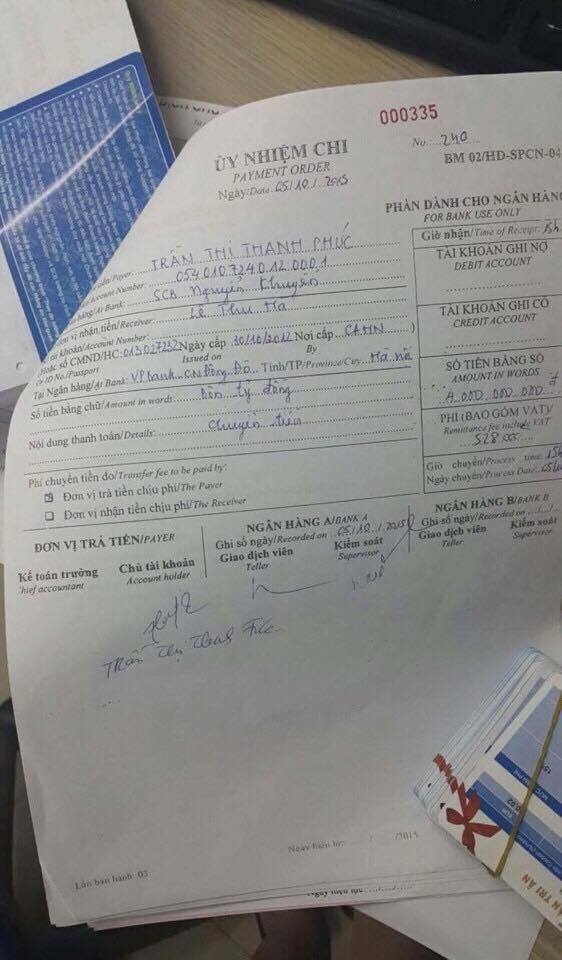 000335
ỦY NHIỆM CHI
PAYMENT ORDER
Ngày/Date 05/10/2015
No: 240
BM 02/HD-SPCN-04
PHẦN DÀNH CHO NGÂN HÀNG
FOR BANK USE ONLY
Giờ nhận/Time of Receipt: 15h
TÀI KHOẢN GHI NỢ
DEBIT ACCOUNT
TÀI KHOẢN GHI CÓ
CREDIT ACCOUNT
SỐ TIỀN BẰNG SỐ
AMOUNT IN WORDS
4.000.000.000đ
PHÍ (BAO GỒM VAT)
Remittance fee include VAT
528.000
Giờ chuyển/Process time: 15h
Ngày chuyển/Process Date: 05/
tiền/Payer: TRẦN THỊ THANH PHÚC
Account Number: 0540107340120001
hàng/At Bank: SCB Nguyễn Khuyến
Đơn vị nhận tiền/Receiver: Lê Thu Hà
khoản/Account Number:
Hoặc số CMND/HC: 013027232 Ngày cấp 30/10/2012 Nơi cấp CAHN )
Or ID No./Passport Issued on By
Tại Ngân hàng/At Bank: VPbank CN Đông Đô Tỉnh/TP:Province/City: Hà nội
Số tiền bằng chữ/Amount in words: Bốn tỷ đồng
Nội dung thanh toán/Details: Chuyển tiền
Phí chuyển tiền do/Transfer fee to be paid by:
Đơn vị trả tiền chịu phí/The Payer
Đơn vị nhận tiền chịu phí/The Receiver
ĐƠN VỊ TRẢ TIỀN/PAYER
Kế toán trưởng Chủ tài khoản
Chief accountant Account holder
NGÂN HÀNG A/BANK A
Ghi sổ ngày/Recorded on 05/10/2015
Giao dịch viên Kiểm soát
Teller Supervisor
NGÂN HÀNG B/BANK B
Ghi sổ ngày/Recorded on
Giao dịch viên Kiểm soát
Teller Supervisor
Trần Thị Thanh Phúc
Lần ban hành: 03
Ngày hiệu lực: /2015
TRI ÂN